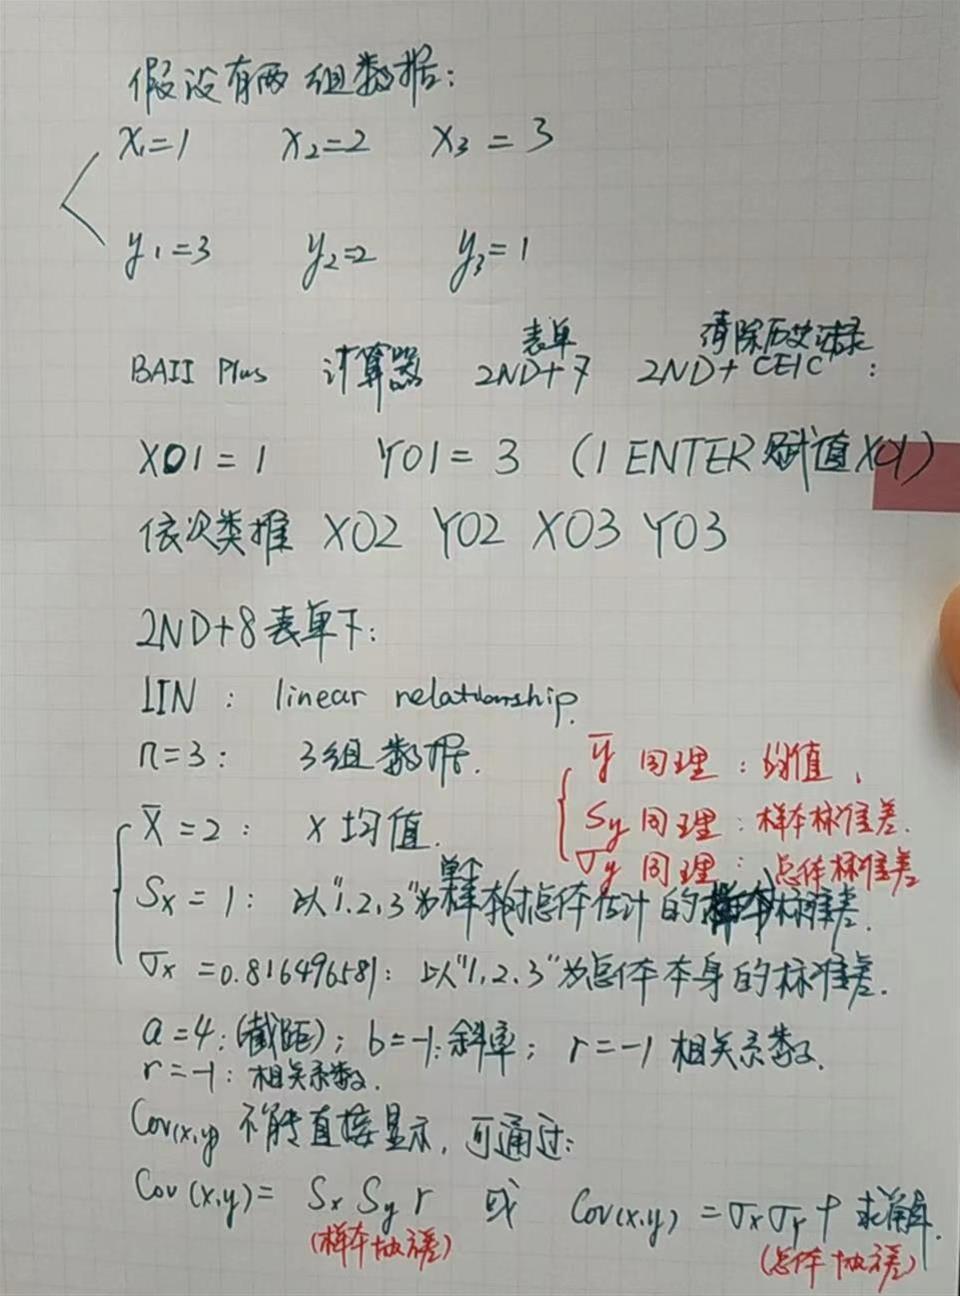 假设有两组数据：
x₁=1 x₂=2 x₃=3
y₁=3 y₂=2 y₃=1
表单 清除历史记录
BAII Plus 计算器 2ND+7 2ND+CE|C：
X01=1 Y01=3 (1 ENTER 赋值X01)
依次类推 X02 Y02 X03 Y03
2ND+8表单下：
LIN： linear relationship.
n=3： 3组数据.
ȳ 同理：均值，
x̄=2： x均值.
Sy 同理：样本标准差.
σy 同理：总体标准差
单个
Sx=1：以"1.2.3"为样本(对总体估计的)标准差.
σx=0.816496581：以"1.2.3"为总体本身的标准差.
a=4：(截距)；b=-1：斜率；r=-1 相关系数.
r=-1：相关系数.
Cov(x,y)不能直接显示，可通过：
Cov(x,y)= Sx Sy r 或 Cov(x,y)=σxσy r 求解.
(样本协方差) (总体协方差)